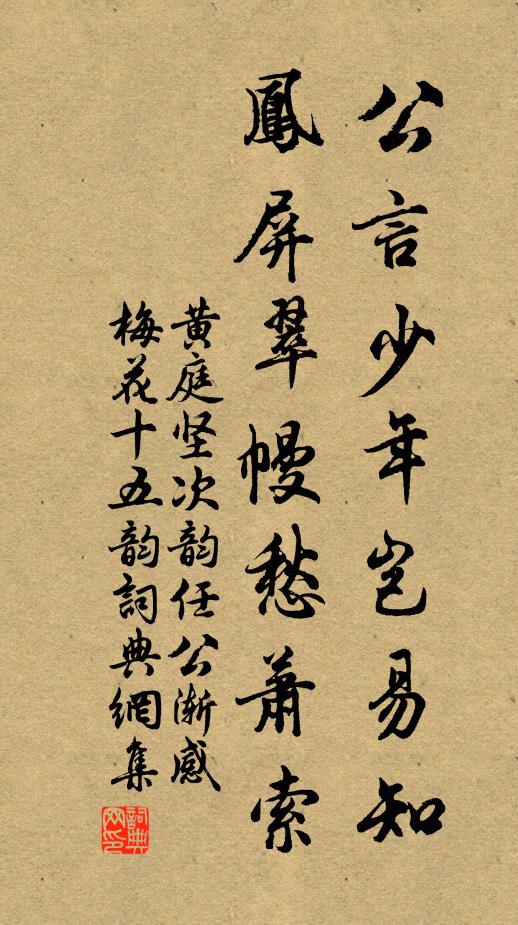 公言少年岂易知
鳳屏翠幔愁蕭索
黄庭坚次韵任公渐感
梅花十五韵詞典網集
詞典
网印